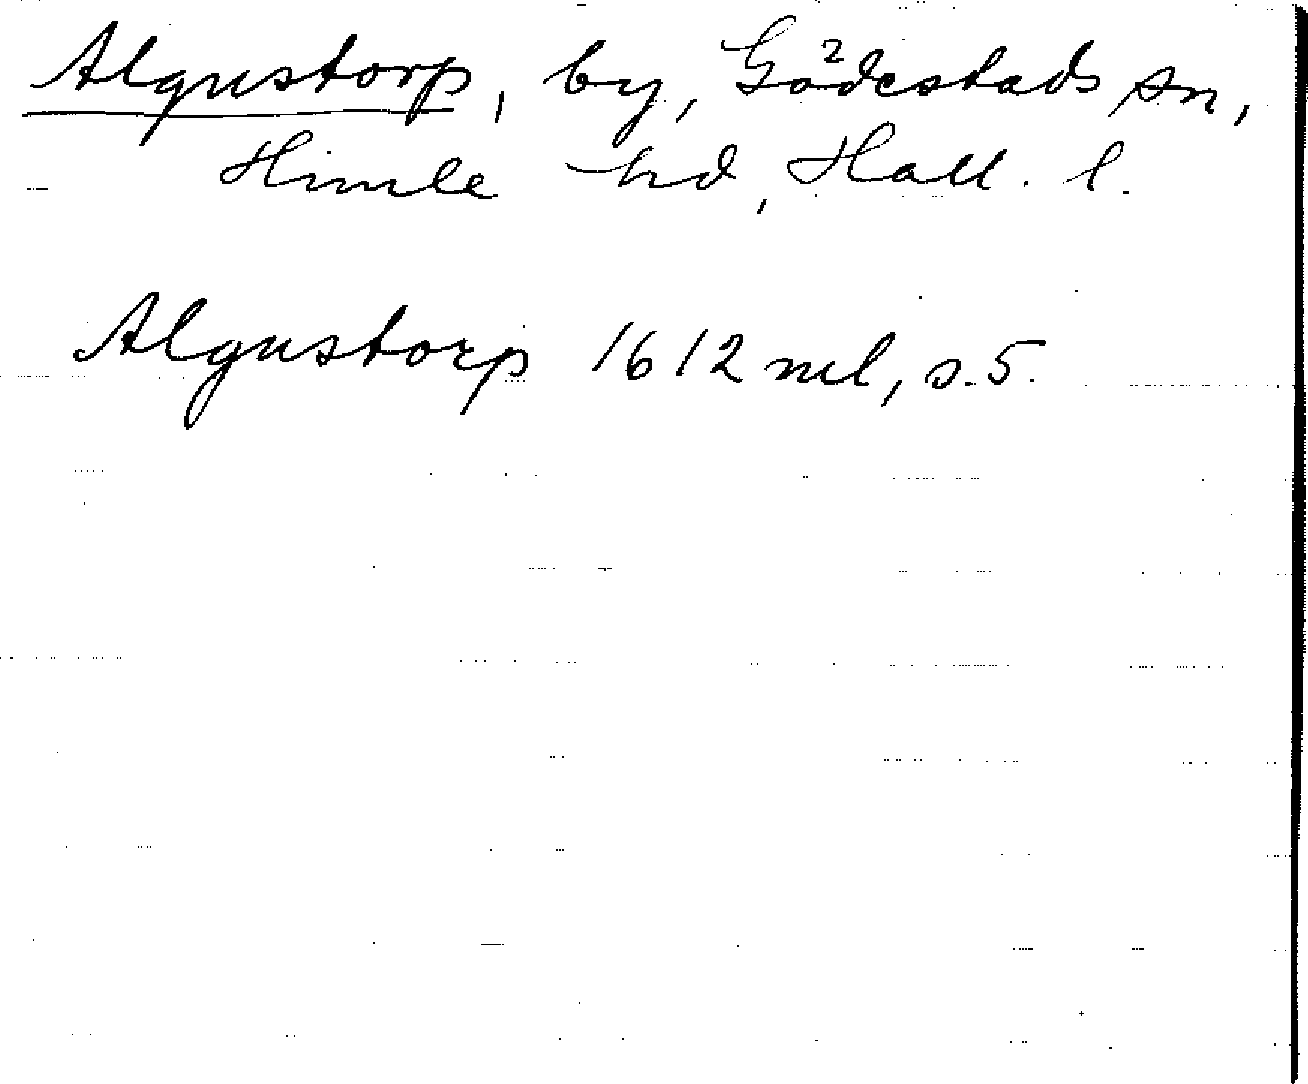 Algustorp, by, Gödestads sn,
Himle hd, Hall. l.
Algustorp 1612 ml, s. 5.